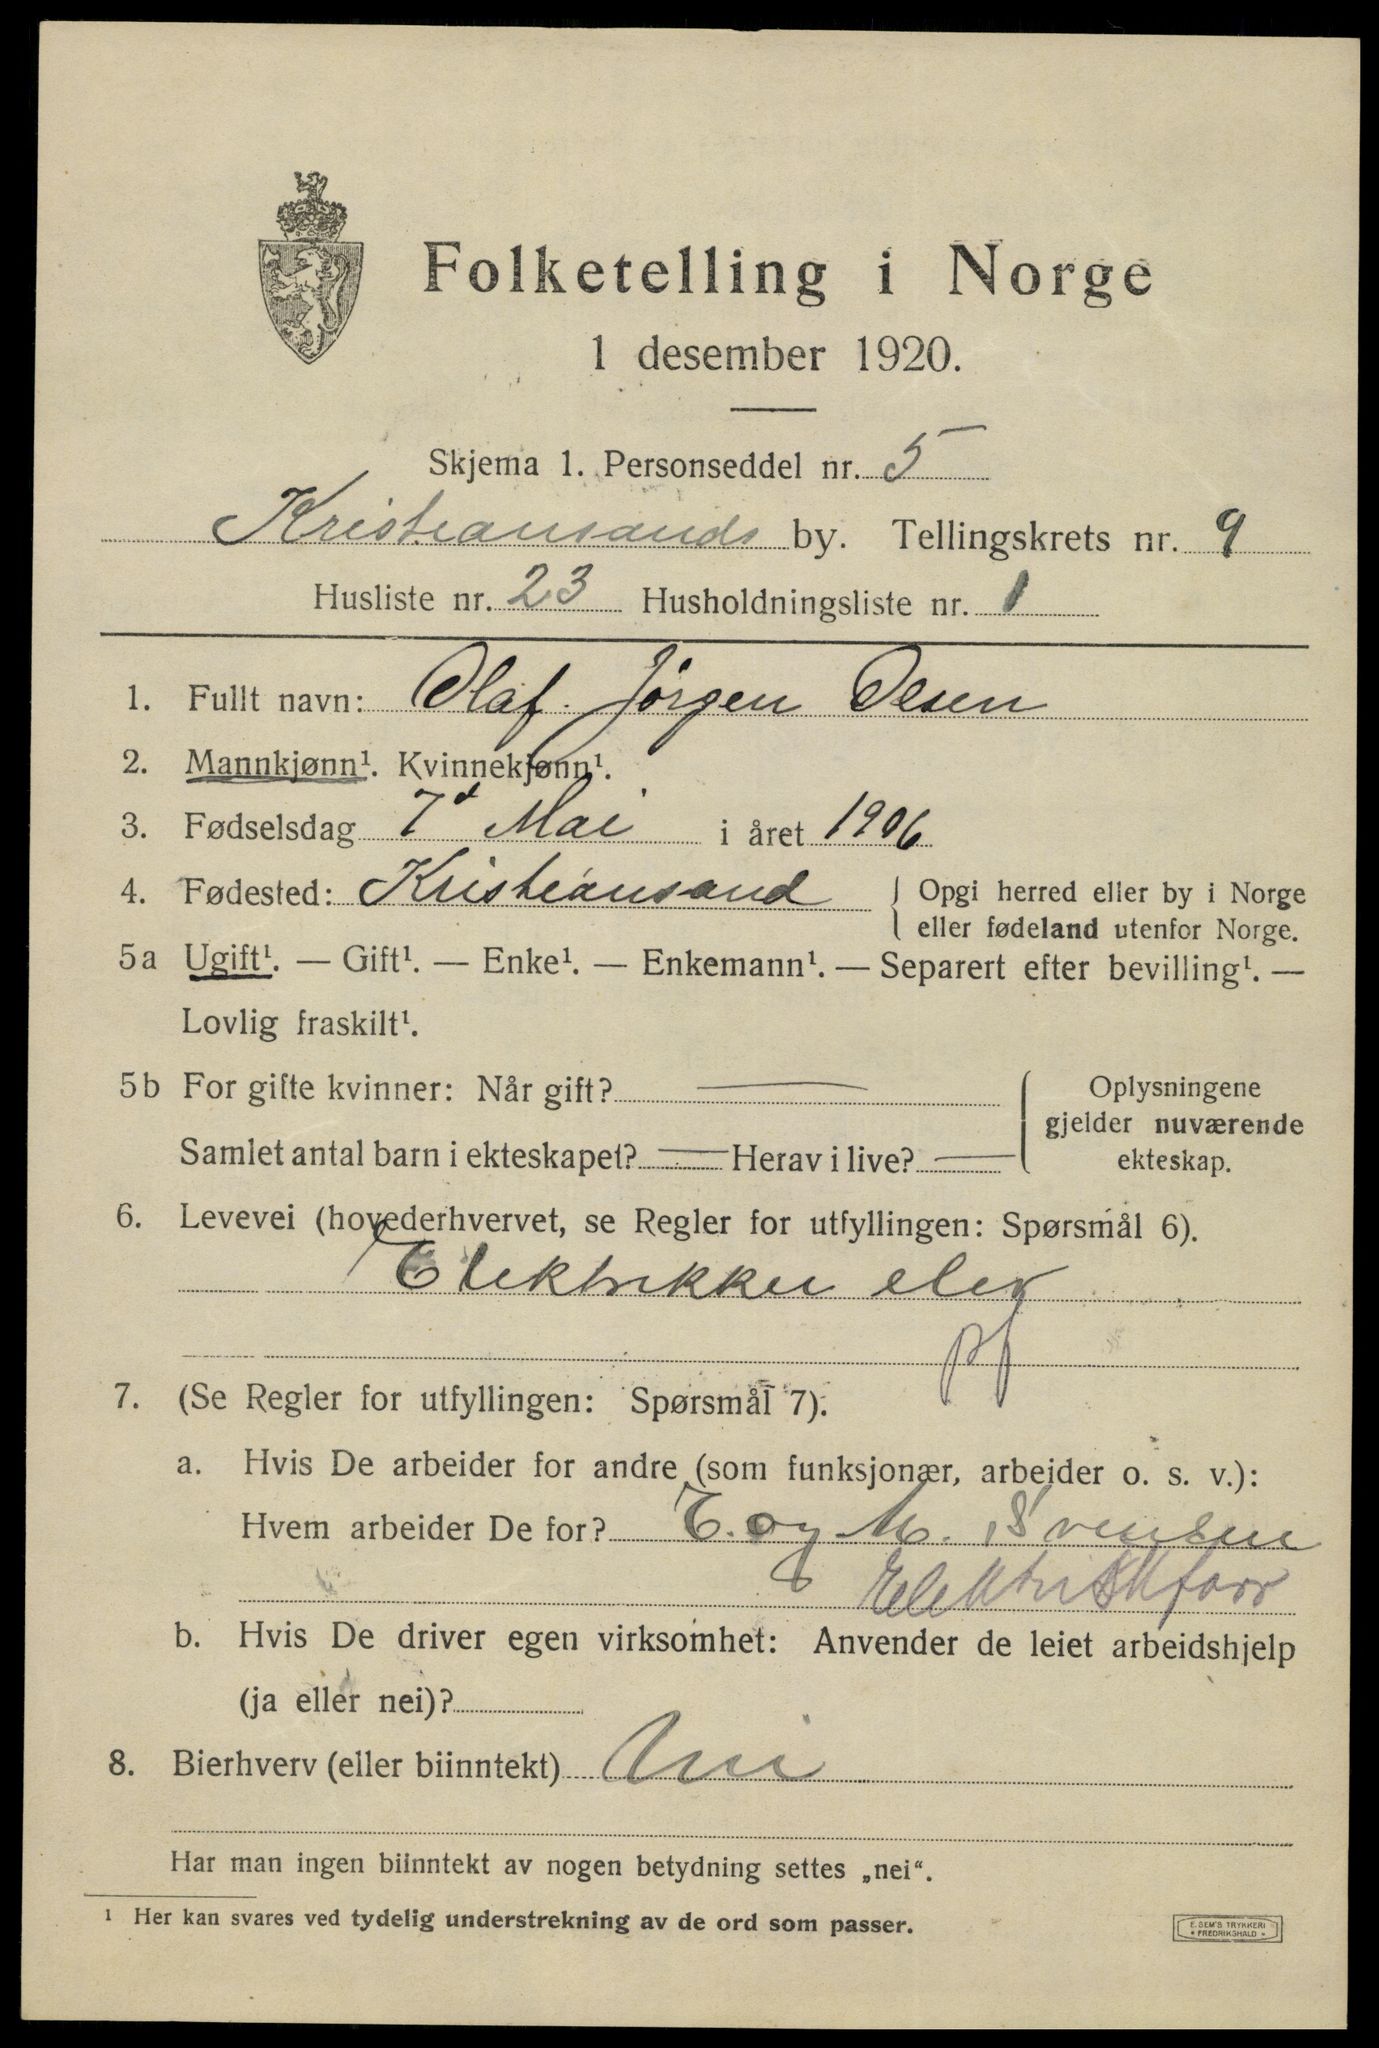 Folketelling i Norge
1 desember 1920.
Skjema 1. Personseddel nr. 5
Kristiansands by. Tellingskrets nr. 9
Husliste nr. 23 Husholdningsliste nr. 1
1. Fullt navn: Olaf Jörgen Olsen
2. Mannkjønn¹. Kvinnekjønn¹.
3. Fødselsdag 7d Mai i året 1906
4. Fødested: Kristiansand { Opgi herred eller by i Norge
eller fødeland utenfor Norge.
5a Ugift¹. — Gift¹. — Enke¹. — Enkemann¹. — Separert efter bevilling¹. —
Lovlig fraskilt¹.
5b For gifte kvinner: Når gift? —
Samlet antal barn i ekteskapet? — Herav i live? —
Oplysningene
gjelder nuværende
ekteskap.
6. Levevei (hovederhvervet, se Regler for utfyllingen: Spørsmål 6).
Elektrikker elev
pf
7. (Se Regler for utfyllingen: Spørsmål 7).
a. Hvis De arbeider for andre (som funksjonær, arbeider o. s. v.):
Hvem arbeider De for? E. og M. Svensen
Elektriskforr
b. Hvis De driver egen virksomhet: Anvender de leiet arbeidshjelp
(ja eller nei)?
8. Bierhverv (eller biinntekt) Nei
Har man ingen biinntekt av nogen betydning settes „nei“.
¹ Her kan svares ved tydelig understrekning av de ord som passer.
E. SEM'S TRYKKERI
* FREDRIKSHALD *